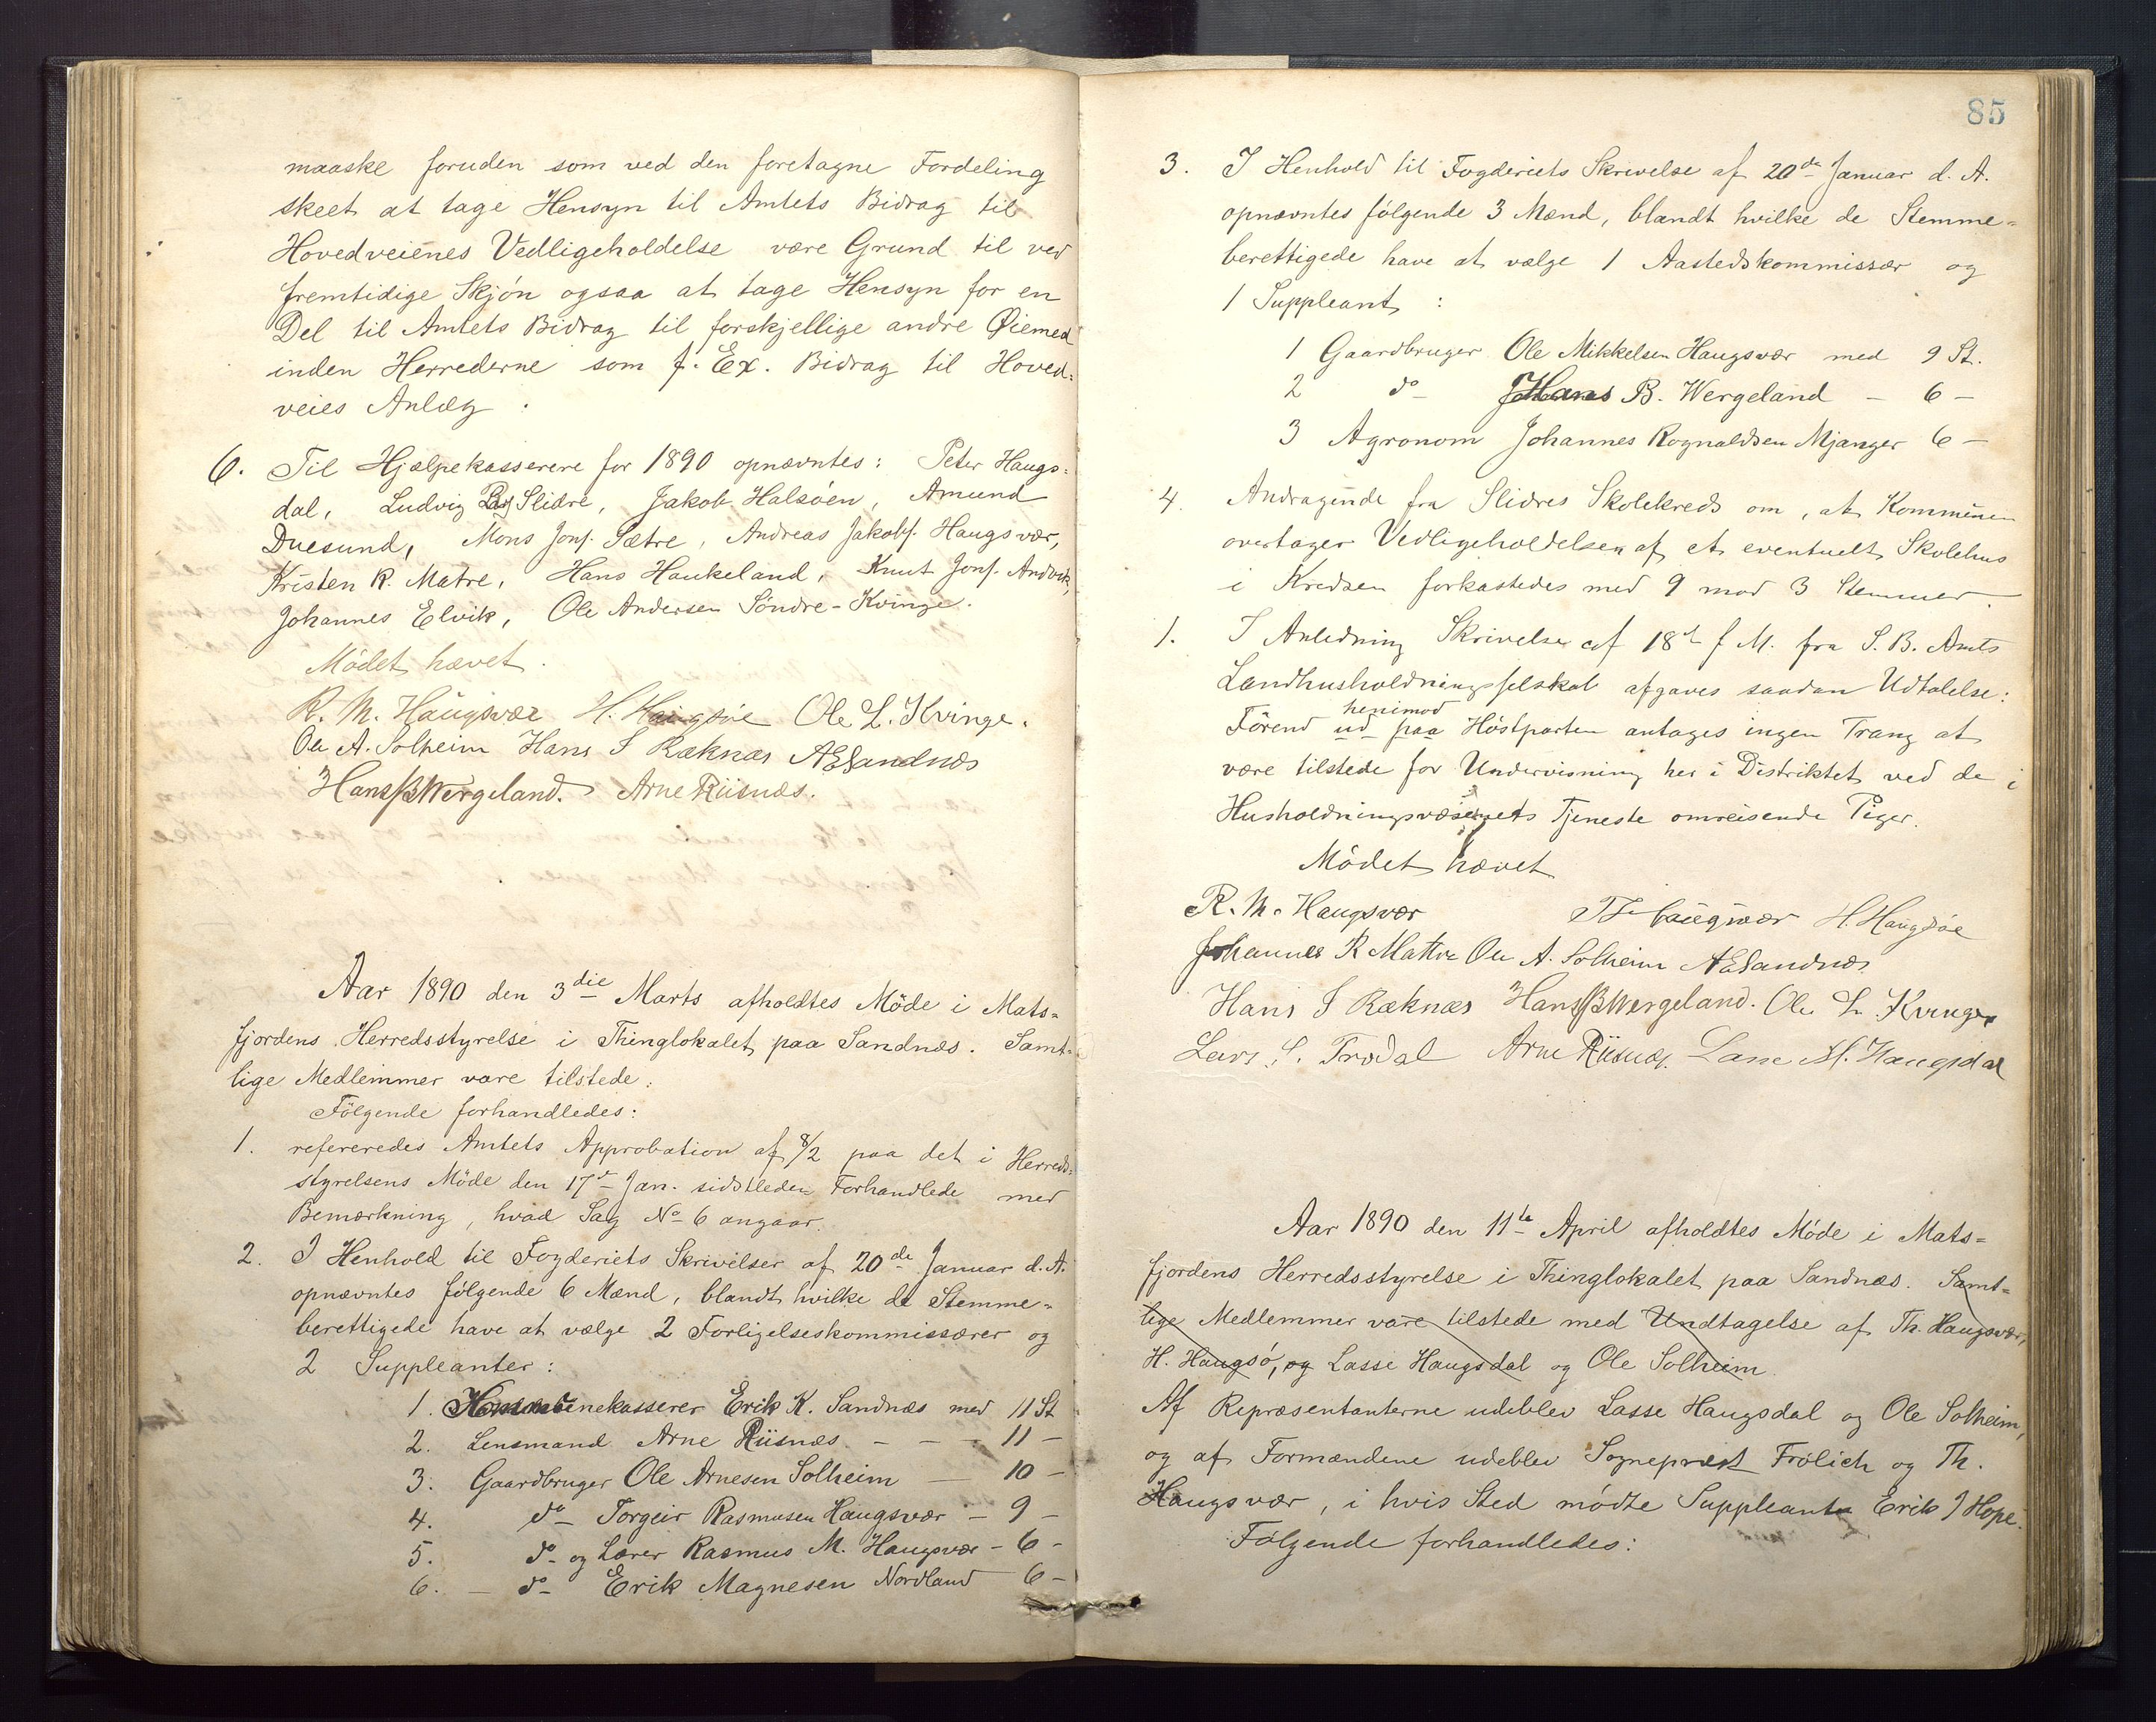 maaske foruden som ved den foretagne Fordeling
skeet at tage Hensyn til Amtets Bidrag til
Hovedveienes Vedligeholdelse være Grund til ved
fremtidige Skjøn ogsaa at tage Hensyn for en
Del til Amtets Bidrag til forskjellige andre Øiemed
inden Herrederne som f. Ex. Bidrag til Hoved-
veies Anlæg.
6. Til Hjælpekasserere for 1890 opnævntes: Peter Haugs-
dal, Ludvig Slidre, Jakob Halsøen, Amund
Duesund, Mons Jons. Sætre, Andreas Jakobs. Haugsvær,
Kristen R. Matre, Hans Haukeland, Knut Jons. Andvik,
Johannes Elvik, Ole Andersen Søndre-Kvinge.
Mødet hævet.
R. M. Haugsvær H. Haugsøe Ole L. Kvinge.
Ole A. Solheim Hans S Ræknæs AESandnæs
Hans B Wergeland. Arne Riisnæs.
Aar 1890 den 3die Marts afholdtes Møde i Mats-
fjordens Herredsstyrelse i Thinglokalet paa Sandnæs. Samt-
lige Medlemmer vare tilstede.
Følgende forhandledes:
1. refereredes Amtets Approbation af 8/2 paa det i Herreds-
styrelsens Møde den 17de Jan. sidstleden Forhandlede med
Bemærkning, hvad Sag No 6 angaar.
2. I Henhold til Fogderiets Skrivelser af 20de Januar d. A.
opnævntes følgende 6 Mænd, blandt hvilke de Stemme-
berettigede have at vælge 2 Forligelseskommissærer og
2 Suppleanter:
1. Kommunekasserer Erik K. Sandnæs med 11 St
2. Lensmand Arne Riisnæs - - - 11 -
3. Gaardbruger Ole Arnesen Solheim - 10 -
4. do Torgeir Rasmusen Haugsvær - 9 -
5. do og Lærer Rasmus M. Haugsvær - 6 -
6. - do Erik Magnesen Nordland 6 -
85
3. I Henhold til Fogderiets Skrivelse af 20de Januar d. A.
opnævntes følgende 3 Mænd, blandt hvilke de Stemme-
berettigede have at vælge 1 Aastedskommissær og
1 Suppleant :
1 Gaardbruger Ole Mikkelsen Haugsvær med 9 St.
2 do Hans B. Wergeland - 6 -
3 Agronom Johannes Rognaldsen Mjanger 6 -
4. Andragende fra Slidres Skolekreds om, at Kommunen
overtager Vedligeholdelsen af et eventuelt Skolehus
i Kredsen forkastedes med 9 mod 3 Stemmer.
1. I Anledning Skrivelse af 18de f. M. fra S. B. Amts
Landhusholdningsselskab afgaves saadan Udtalelse:
henimod
Førend ud paa Høstparten antages ingen Trang at
være tilstede for Undervisning her i Distriktet ved de i
Husholdningsvæsenets Tjeneste omreisende Piger.
Mødet hævet
R. M. Haugsvær Th Haugsvær H. Haugsøe
Johannes R Matre Ole A. Solheim AESandnæs
Hans S Ræknæs Hans B Wergeland. Ole L. Kvinge
Lars S. Trodal Arne Riisnæs. Lasse M. Haugsdal
Aar 1890 den 11te April afholdtes Møde i Mats-
fjordens Herredsstyrelse i Thinglokalet paa Sandnæs. Samt-
lige Medlemmer vare tilstede med Undtagelse af Th. Haugsvær,
H. Haugsø, og Lasse Haugsdal og Ole Solheim.
Af Repræsentanterne udeblev Lasse Haugsdal og Ole Solheim,
og af Formændene udeblev Sogneprest Frølich og Th.
Haugsvær, i hvis Sted mødte Suppleant Erik J Hope.
Følgende forhandledes: